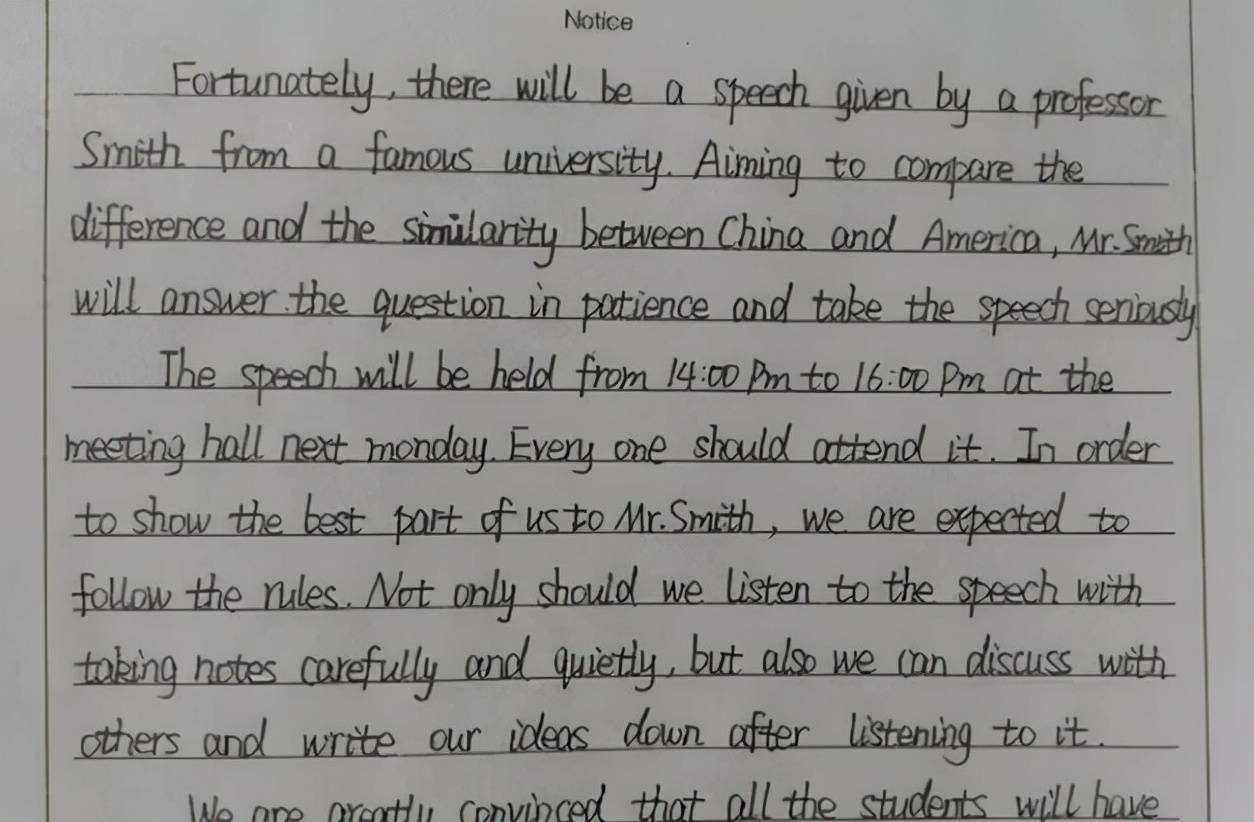 Notice
Fortunately, there will be a speech given by a professor
Smith from a famous university. Aiming to compare the
difference and the similarity between China and America, Mr. Smith
will answer the question in patience and take the speech seriously
The speech will be held from 14:00 Pm to 16:00 Pm at the
meeting hall next monday. Every one should attend it. In order
to show the best part of us to Mr. Smith, we are expected to
follow the rules. Not only should we listen to the speech with
taking notes carefully and quietly, but also we can discuss with
others and write our ideas down after listening to it.
We are greatly convinced that all the students will have